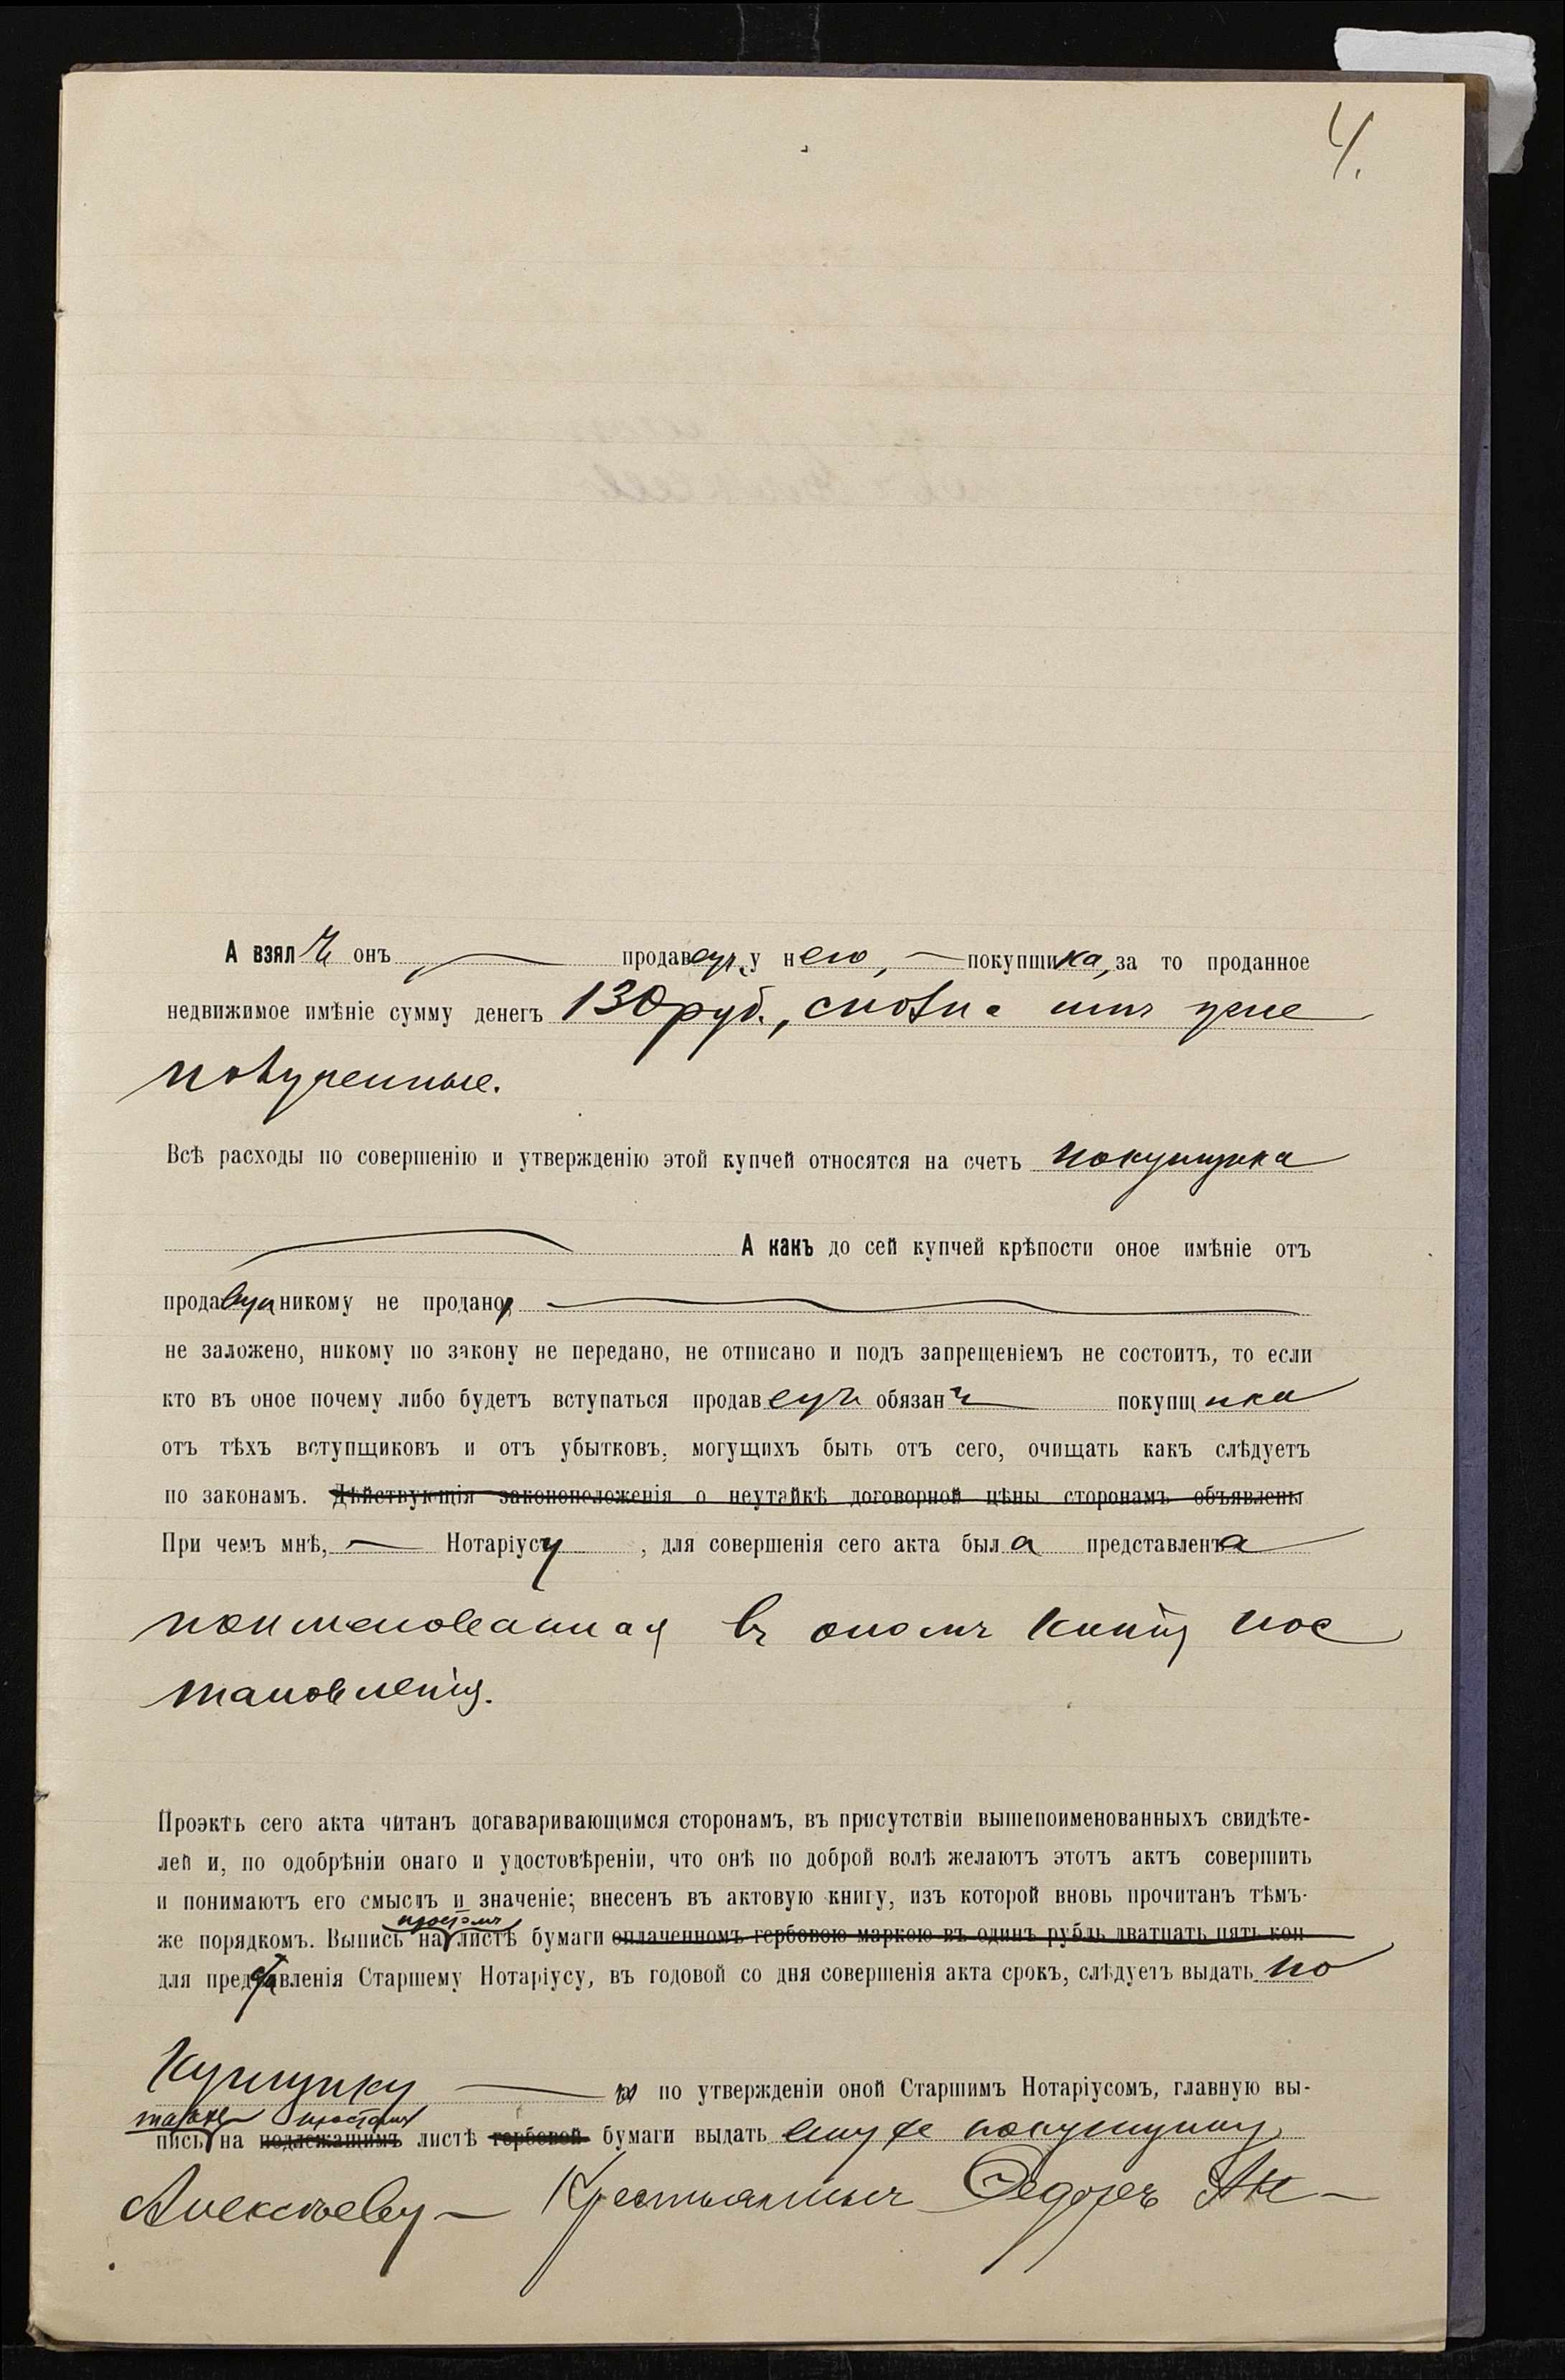 4.
А взялъ онъ продавецъ, у него, покупщика, за то проданное
недвижимое имѣніе сумму денегъ 130 руб., сполна имъ уже
полученные.
Всѣ расходы по совершенію и утвержденію этой купчей относятся на счетъ покупщика
А какъ до сей купчей крѣпости оное имѣніе отъ
продавца никому не продано,
не заложено, никому по закону не передано, не отписано и подъ запрещеніемъ не состоитъ, то если
кто въ оное почему либо будетъ вступаться продавецъ обязанъ покупщика
отъ тѣхъ вступщиковъ и отъ убытковъ, могущихъ быть отъ сего, очищать какъ слѣдуетъ
по законамъ. Дѣйствующія законоположенія о неутайкѣ договорной цѣны сторонамъ объявлены
При чемъ мнѣ, Нотаріусу, для совершенія сего акта была представлена
поименованная въ ономъ копія пос
тановленія.
Проэктъ сего акта читанъ догаваривающимся сторонамъ, въ присутствіи вышепоименованныхъ свидѣте-
лей и, по одобрѣніи онаго и удостовѣреніи, что онѣ по доброй волѣ желаютъ этотъ актъ совершить
и понимаютъ его смыслъ и значеніе; внесенъ въ актовую книгу, изъ которой вновь прочитанъ тѣмъ-
простомъ
же порядкомъ. Выпись на листѣ бумаги оплаченномъ гербовою маркою въ одинъ рубль дватцать пять коп
для представленія Старшему Нотаріусу, въ годовой со дня совершенія акта срокъ, слѣдуетъ выдать по
купщику по утвержденіи оной Старшимъ Нотаріусомъ, главную вы-
также простомъ
пись на подлежащимъ листѣ гербовой бумаги выдать ему же покупщику
Алексѣеву Крестьянинъ Федоръ Ак-